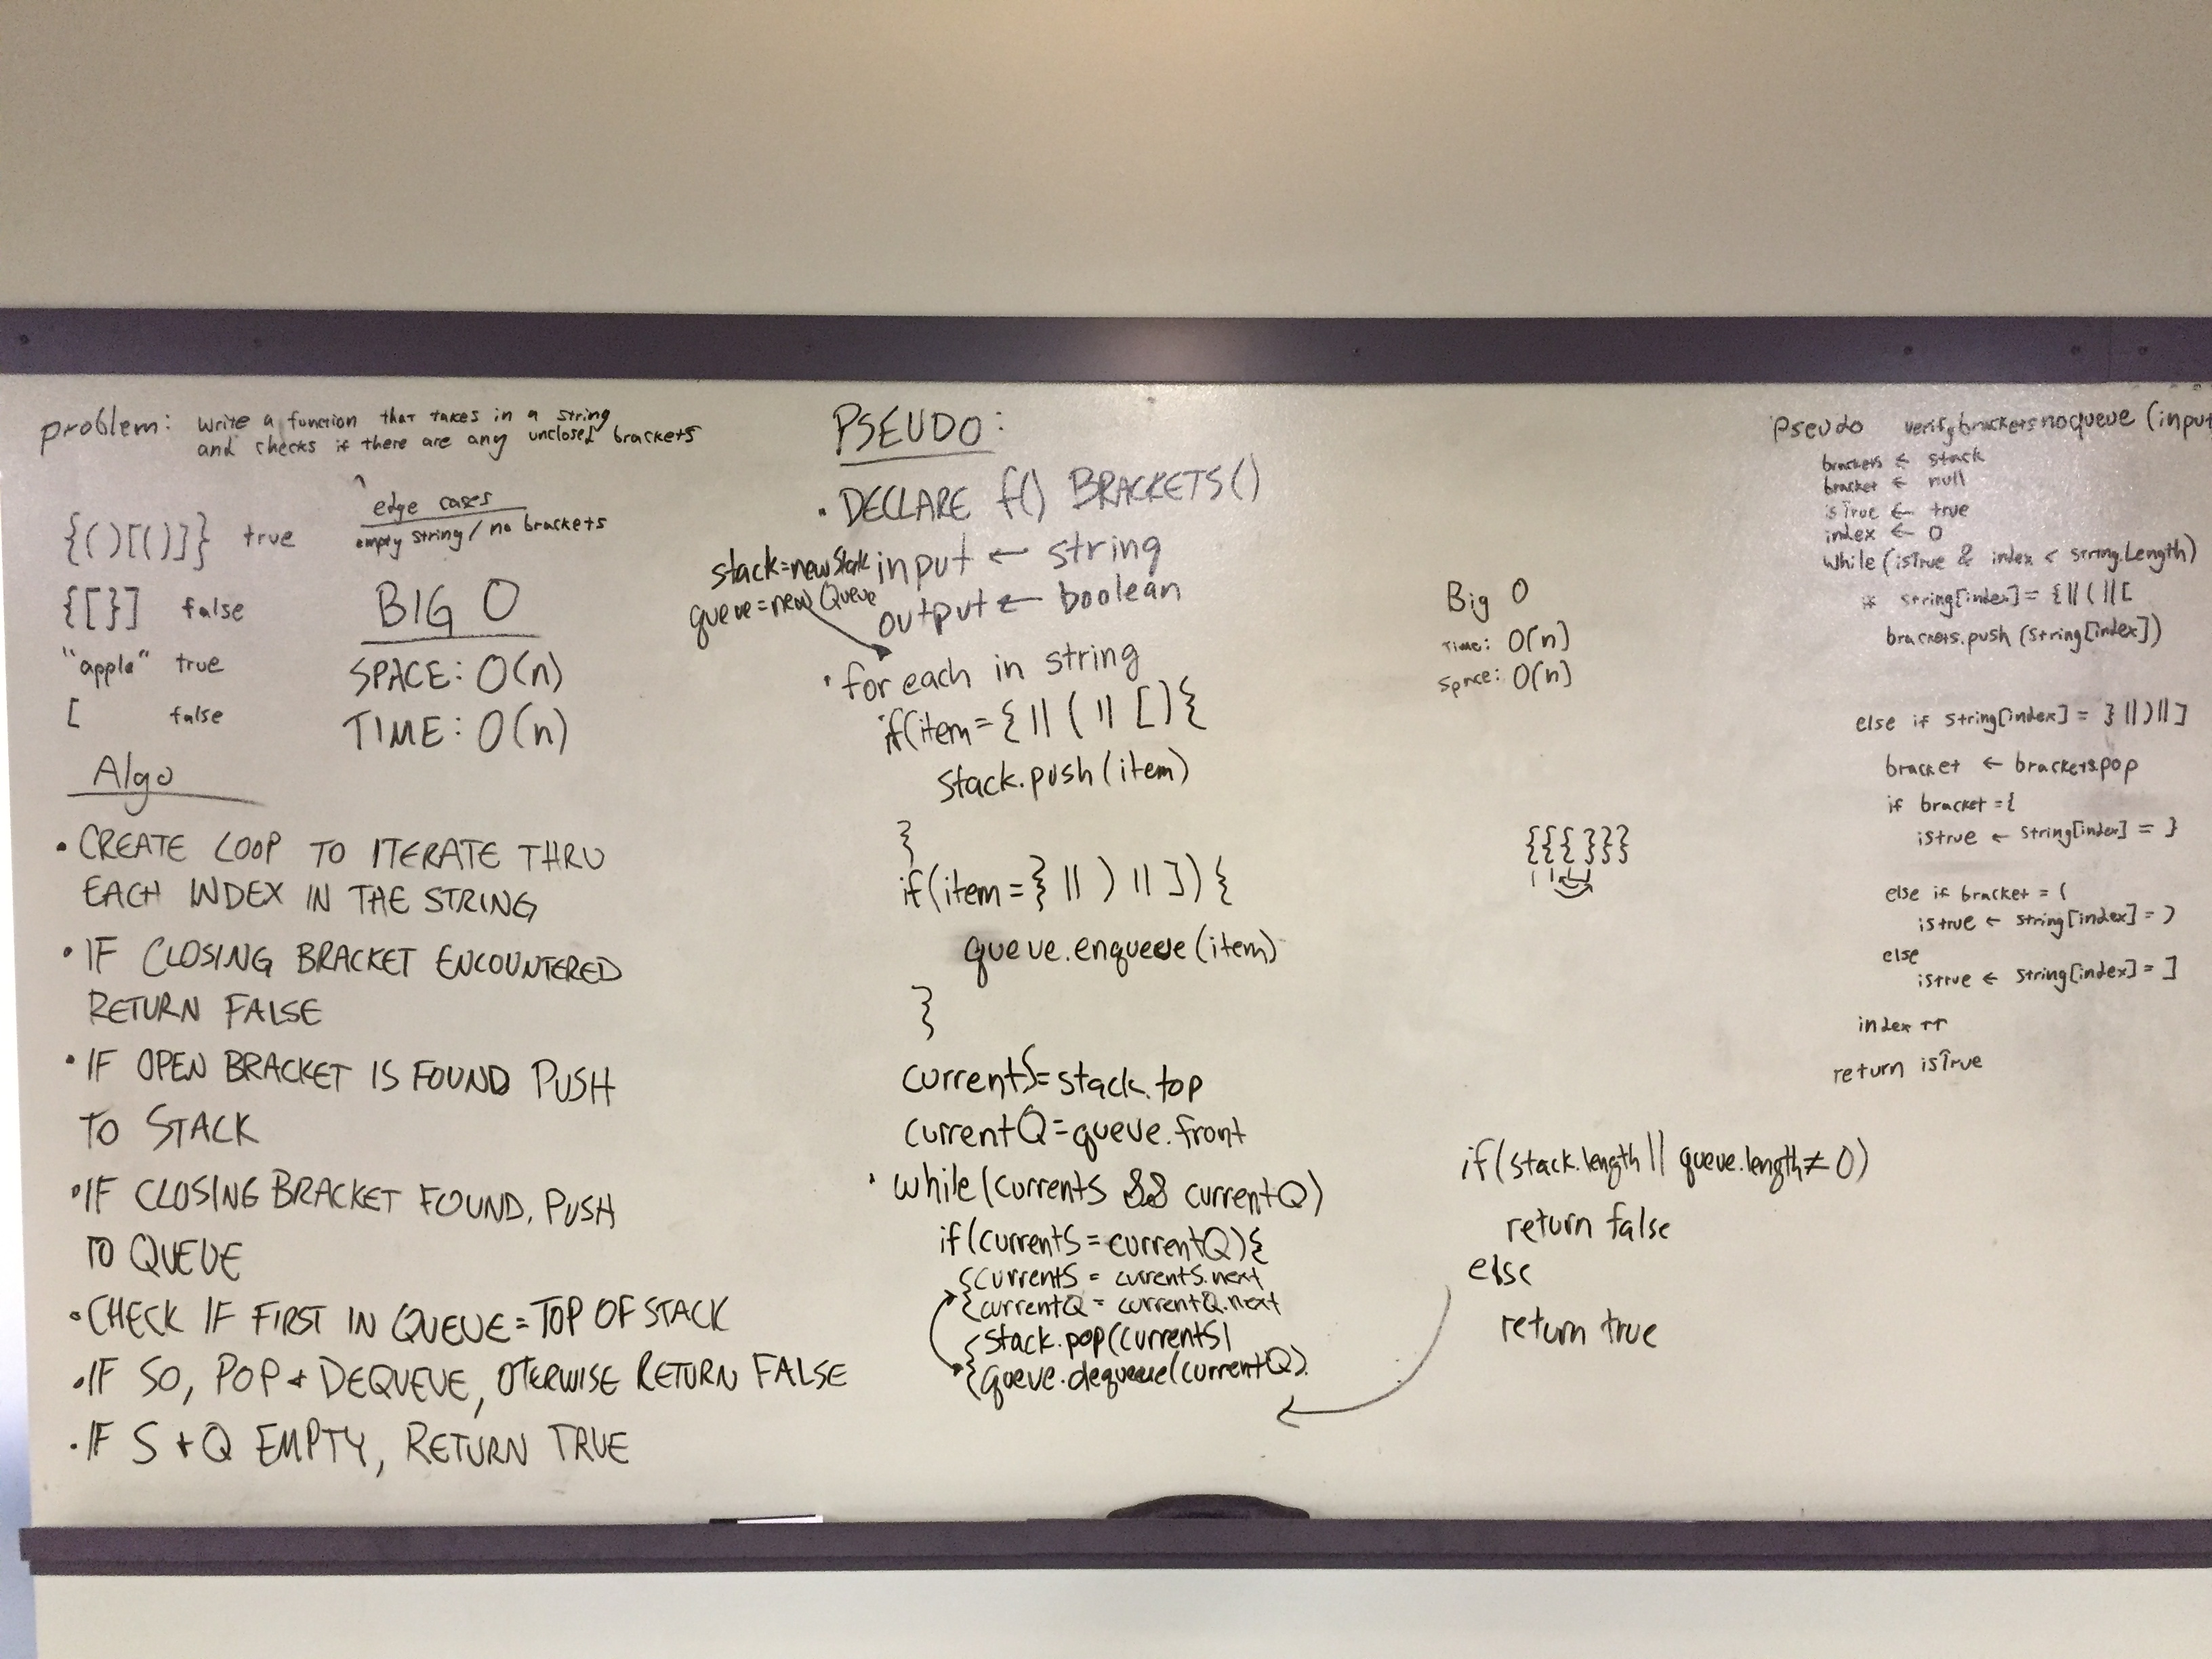 problem: write a function that takes in a string
and checks if there are any unclosed brackets
edge cases
empty string / no brackets
{()[()]} true
{[}] false
"apple" true
[ false
BIG O
SPACE: O(n)
TIME: O(n)
Algo
• CREATE LOOP TO ITERATE THRU
EACH INDEX IN THE STRING
• IF CLOSING BRACKET ENCOUNTERED
RETURN FALSE
• IF OPEN BRACKET IS FOUND PUSH
TO STACK
• IF CLOSING BRACKET FOUND, PUSH
TO QUEUE
• CHECK IF FIRST IN QUEUE = TOP OF STACK
• IF SO, POP + DEQUEUE, OTERWISE RETURN FALSE
• IF S + Q EMPTY, RETURN TRUE
PSEUDO:
• DECLARE f() BRACKETS()
input ← string
output ← boolean
stack = new Stack
queue = new Queue
• for each in string
if(item = { || ( || [) {
stack.push(item)
}
if(item = } || ) || ]) {
queue.enqueue(item)
}
currentS = stack.top
currentQ = queue.front
• while(currentS && currentQ)
if(currentS = currentQ){
{currentS = currentS.next
{currentQ = currentQ.next
{stack.pop(currentS)
{queue.dequeue(currentQ)
Big O
Time: O(n)
Space: O(n)
{{{}}}
if(stack.length || queue.length ≠ 0)
return false
else
return true
Pseudo verifybracketsnoqueue (input
brackets ← stack
bracket ← null
isTrue ← true
index ← 0
while (isTrue & index < string.Length)
if string[index] = { || ( || [
brackets.push (string[index])
else if string[index] = } || ) || ]
bracket ← brackets.pop
if bracket = {
istrue ← string[index] = }
else if bracket = (
istrue ← string[index] = )
else
istrue ← string[index] = ]
index ++
return isTrue